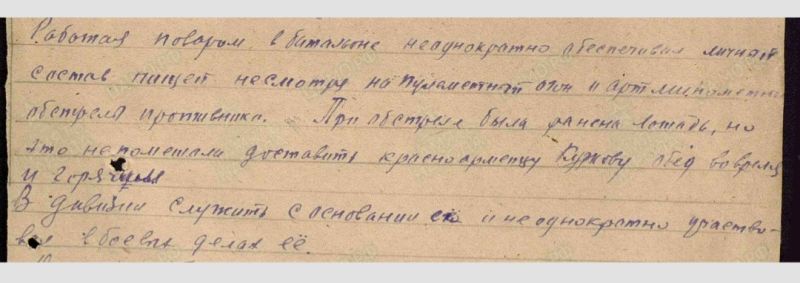 Работая поваром в батальоне неоднократно обеспечивал личный
состав пищей несмотря на пулеметный огон и артминометн
обстрелы противника. При обстреле была ранена лошадь, но
это непомешали доставить красноармейцу Куркову обед вовремя
и горячим
В дивизии служить с основании её и неоднократно участво-
вал в боевых делах её.